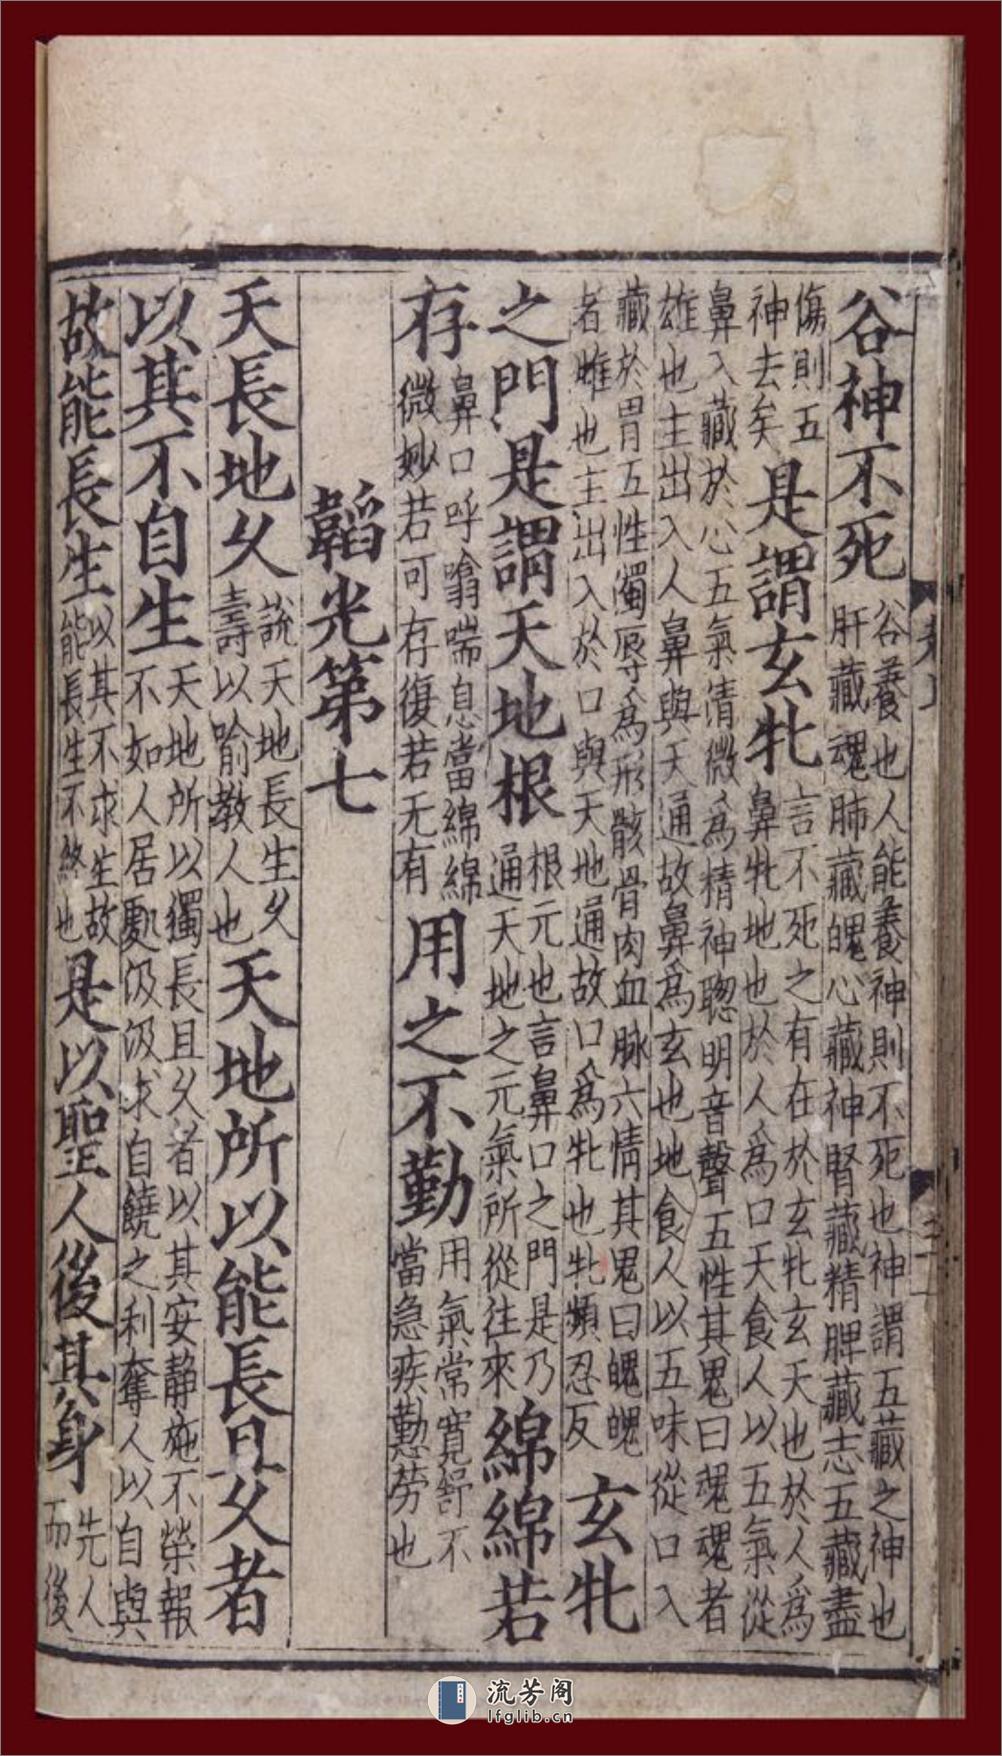 谷神不死谷養也人能養神則不死也神謂五藏之神也肝藏魂肺藏魄心藏神腎藏精脾藏志五藏盡
傷則五神去矣是謂玄牝言不死之有在於玄牝玄天也於人爲鼻牝地也於人爲口天食人以五氣從
鼻入藏於心五氣清微爲精神聦明音聲五性其鬼曰魂魂者
雄也主出入人鼻與天通故鼻爲玄也地食人以五味從口入
藏於胃五性濁辱爲形骸骨肉血脉六情其鬼曰魄魄者雌也主出入於口與天地通故口爲牝也牝頻忍反玄牝
之門是謂天地根根元也言鼻口之門是乃通天地之元氣所從往來綿綿若
存鼻口呼噏喘息當綿綿微妙若可存復若无有用之不勤用氣常寬舒不當急疾懃勞也
韜光第七
天長地乆說天地長生乆壽以喻教人也天地所以能長且乆者
以其不自生天地所以獨長且乆者以其安静施不榮報不如人居處汲汲求自饒之利奪人以自與
故能長生以其不求生故能長生不終也是以聖人後其身先人而後
流芳阁
lfglib.cn